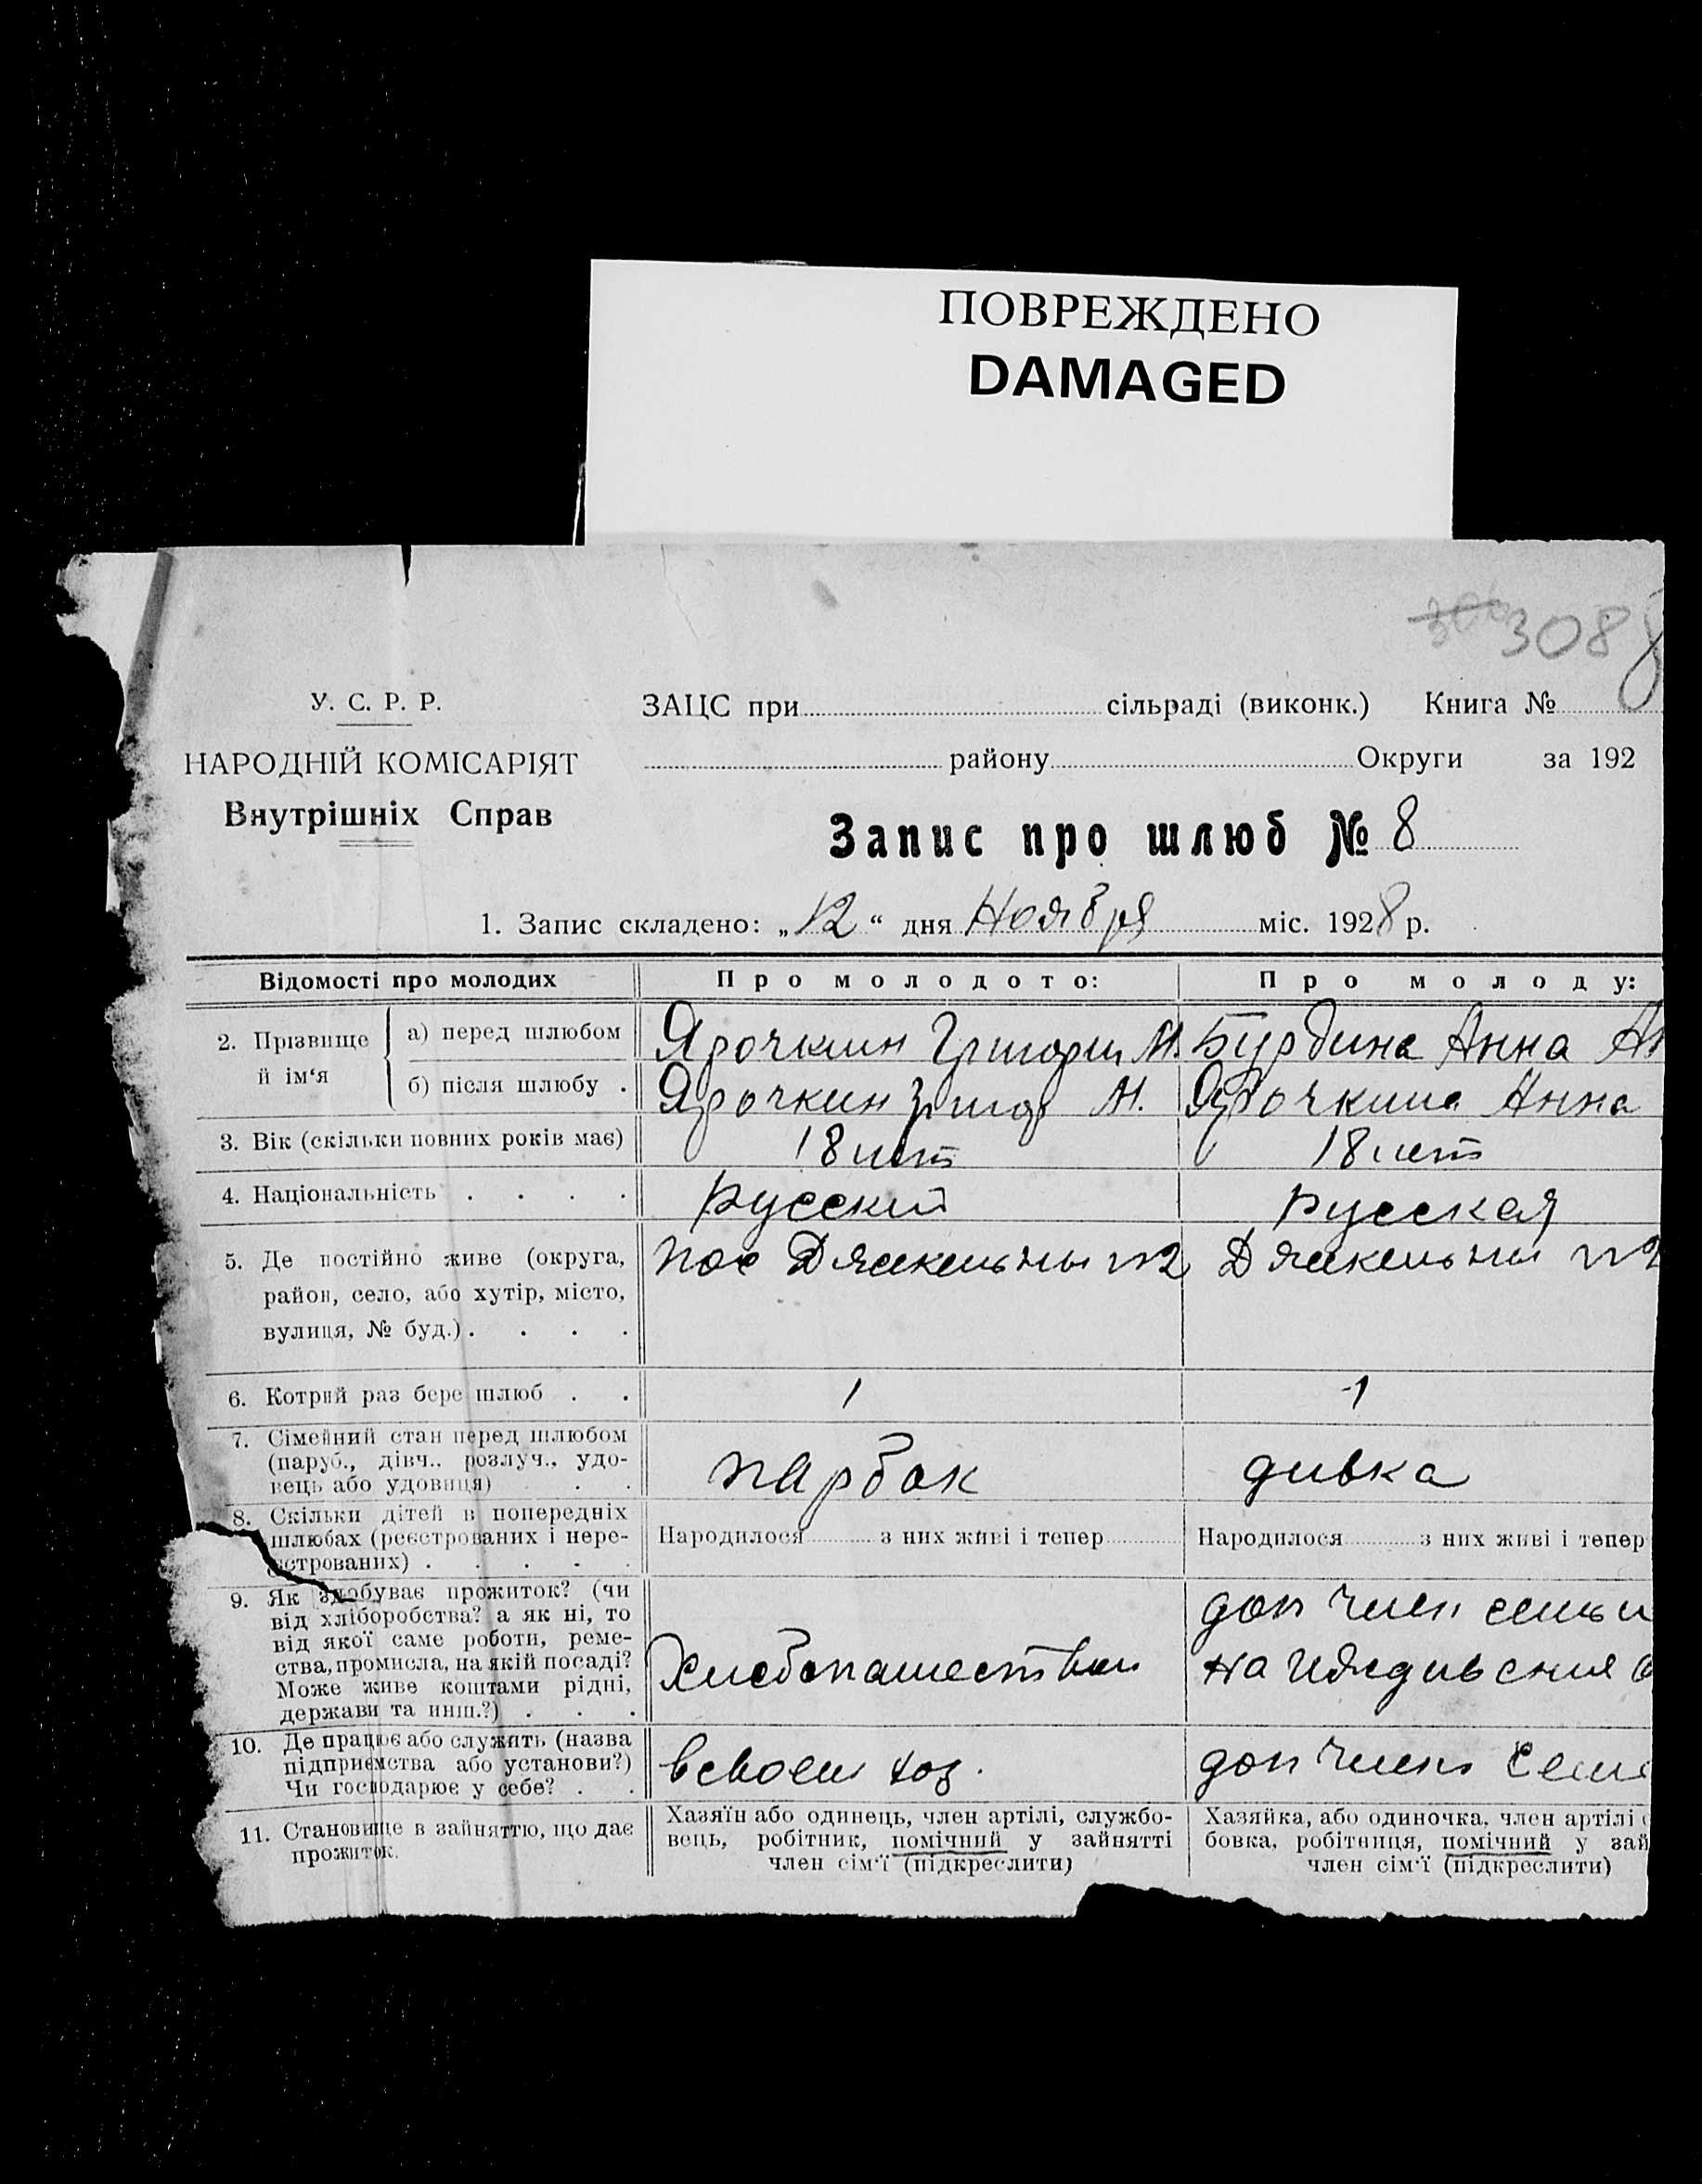 ПОВРЕЖДЕНО
DAMAGED
3088
У. С. Р. Р.
НАРОДНІЙ КОМІСАРІЯТ
Внутрішніх Справ
ЗАЦС при сільраді (виконк.) Книга №
району Округи за 192
Запис про шлюб № 8
1. Запис складено: „12“ дня Ноября міс. 1928 р.
Відомості про молодих Про молодого: Про молоду:
2. Прізвище й ім‘я
а) перед шлюбом Ярочкин Григорий М. Бурдина Анна
б) після шлюбу . Ярочкин Григор М. Ярочкина Анна
3. Вік (скільки повних років має) 18 лет 18 лет
4. Національність . . . . Русский Русская
5. Де постійно живе (округа,
район, село, або хутір, місто,
вулиця, № буд.) . . . .
пос №2 №2
6. Котрий раз бере шлюб . . 1 1
7. Сімейний стан перед шлюбом
(паруб., дівч., розлуч., удо-
вець або удовиця) . .
парбок дивка
8. Скільки дітей в попередніх
шлюбах (реєстрованих і нере-
єстрованих) . . . . .
Народилося з них живі і тепер Народилося з них живі і тепер
9. Як здобуває прожиток? (чи
від хліборобства? а як ні, то
від якої саме роботи, реме-
ства, промисла, на якій посаді?
Може живе коштами рідні,
держави та инш.?) . . .
Хлебопашеством
доп член семьи
на
10. Де працює або служить (назва
підприємства або установи?)
Чи господарює у себе? . .
всвоем хоз.
доп член Семи
11. Становище в зайняттю, що дає
прожиток.
Хазяїн або одинець, член артілі, службо-
вець, робітник, помічний у зайнятті
член сім‘ї (підкреслити)
Хазяйка, або одиночка, член артілі
бовка, робітниця, помічний у зай
член сім‘ї (підкреслити)